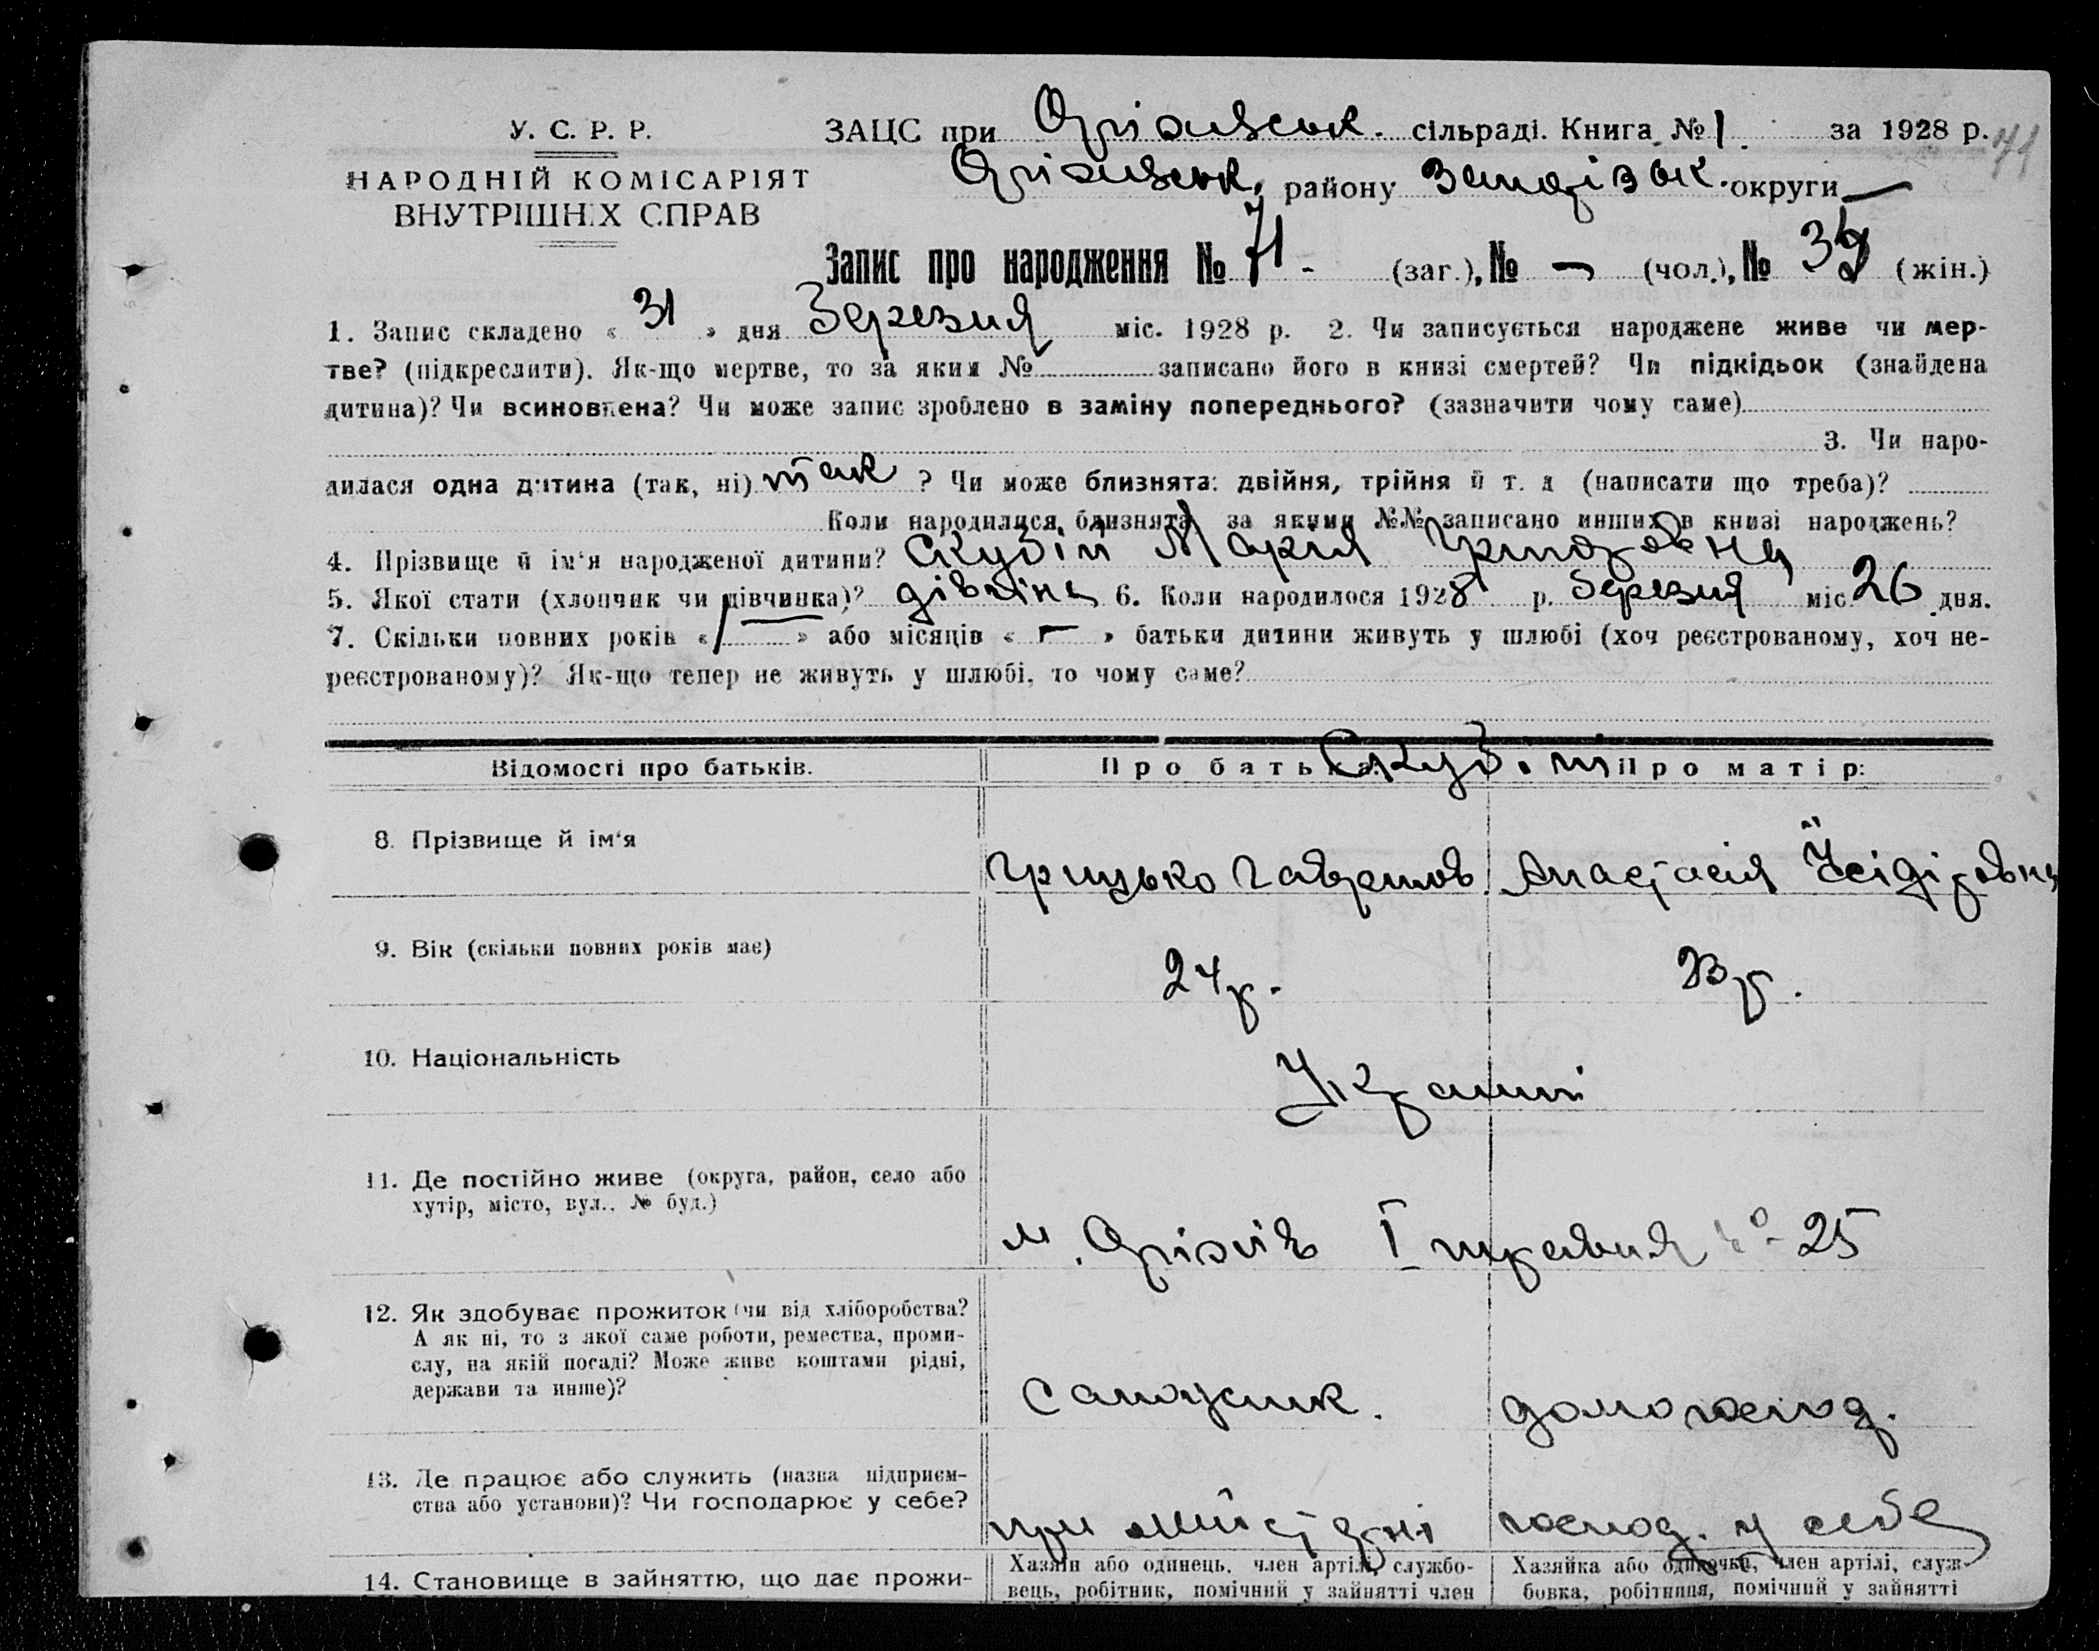 У. С. Р. Р.
НАРОДНІЙ КОМІСАРІЯТ
ВНУТРІШНІХ СПРАВ
ЗАЦС при Оріхівськ. сільраді. Книга № 1. за 1928 р.
71
Оріхівськ. району Запорізьк. округи
Запис про народження № 71 - (заг.), № — (чол.), № (жін.)
1. Запис складено « 31 » дня Березня міс. 1928 р. 2. Чи записується народжене живе чи мер-
тве? (підкреслити). Як-що мертве, то за яким № записано його в книзі смертей? Чи підкідьок (знайдена
дитина)? Чи всиновлена? Чи може запис зроблено в заміну попереднього? (зазначити чому саме)
3. Чи наро-
дилася одна дитина (так, ні) так ? Чи може близнята: двійня, трійня й т. д (написати що треба)?
Коли народилися близнята, за якими №№ записано инших в книзі народжень?
4. Прізвище й ім'я народженої дитини? Скубій Марія Григоровна
5. Якої стати (хлопчик чи дівчинка)? дівчина 6. Коли народилося 1928 р. березня міс. 26 дня.
7. Скільки повних років « — » або місяців « — » батьки дитини живуть у шлюбі (хоч реєстрованому, хоч не-
реєстрованому)? Як-що тепер не живуть у шлюбі, то чому саме?
Відомості про батьків. Про батька: Про матір:
8. Прізвище й ім'я
Грицько Гаврилов. Анастасія Ісідоровна
9. Вік (скільки повних років має)
24 р. 23 р.
10. Національність
Українці
11. Де постійно живе (округа, район, село або
хутір, місто, вул., № буд.)
м. Оріхів 1 травня № 25
12. Як здобуває прожиток (чи від хліборобства?
А як ні, то з якої саме роботи, ремества, проми-
слу, на якій посаді? Може живе коштами рідні,
держави та инше)?
Сапожник. домогоспод.
13. Де працює або служить (назва підприєм-
ства або установи)? Чи господарює у себе?
при господ. у себе
14. Становище в зайняттю, що дає прожи-
Хазяїн або одинець, член артілі, службо-
вець, робітник, помічний у зайнятті член
Хазяйка або одиначка, член артілі, служ-
бовка, робітниця, помічний у зайнятті